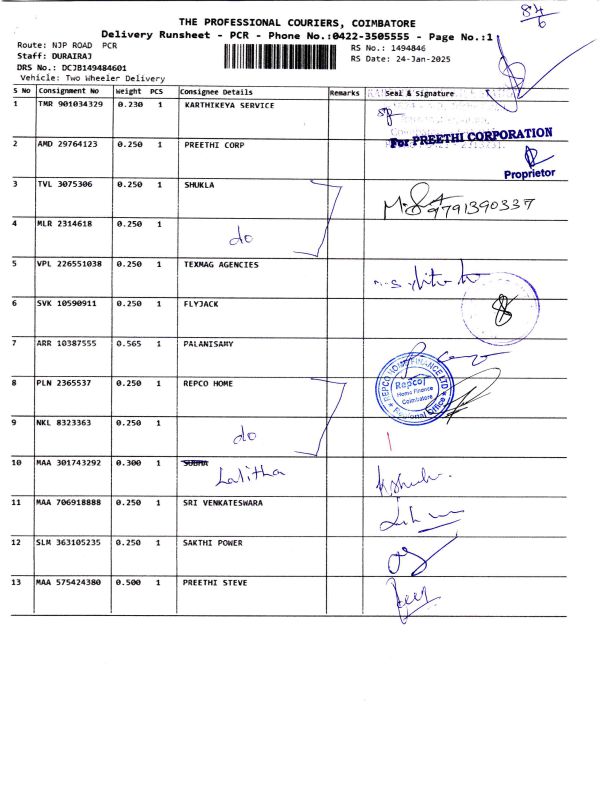 84
6
THE PROFESSIONAL COURIERS, COIMBATORE
Delivery Runsheet - PCR - Phone No.:0422-3505555 - Page No.:1
Route: NJP ROAD PCR
RS No.: 1494846
Staff: DURAIRAJ
RS Date: 24-Jan-2025
DRS No.: DCJB149484601
Vehicle: Two Wheeler Delivery
S No Consignment No Weight PCS Consignee Details Remarks Seal & Signature
1 TMR 901034329 0.230 1 KARTHIKEYA SERVICE
2 AMD 29764123 0.250 1 PREETHI CORP
For PREETHI CORPORATION
Proprietor
3 TVL 3075306 0.250 1 SHUKLA
9791390337
4 MLR 2314618 0.250 1
do
5 VPL 226551038 0.250 1 TEXMAG AGENCIES
6 SVK 10590911 0.250 1 FLYJACK
7 ARR 10387555 0.565 1 PALANISAMY
8 PLN 2365537 0.250 1 REPCO HOME
REPCO HOME FINANCE LTD
Repco
Home Finance
Coimbatore
Regional Office
9 NKL 8323363 0.250 1
do
10 MAA 301743292 0.300 1 SUBHA
Lalitha
11 MAA 706918888 0.250 1 SRI VENKATESWARA
12 SLM 363105235 0.250 1 SAKTHI POWER
13 MAA 575424380 0.500 1 PREETHI STEVE